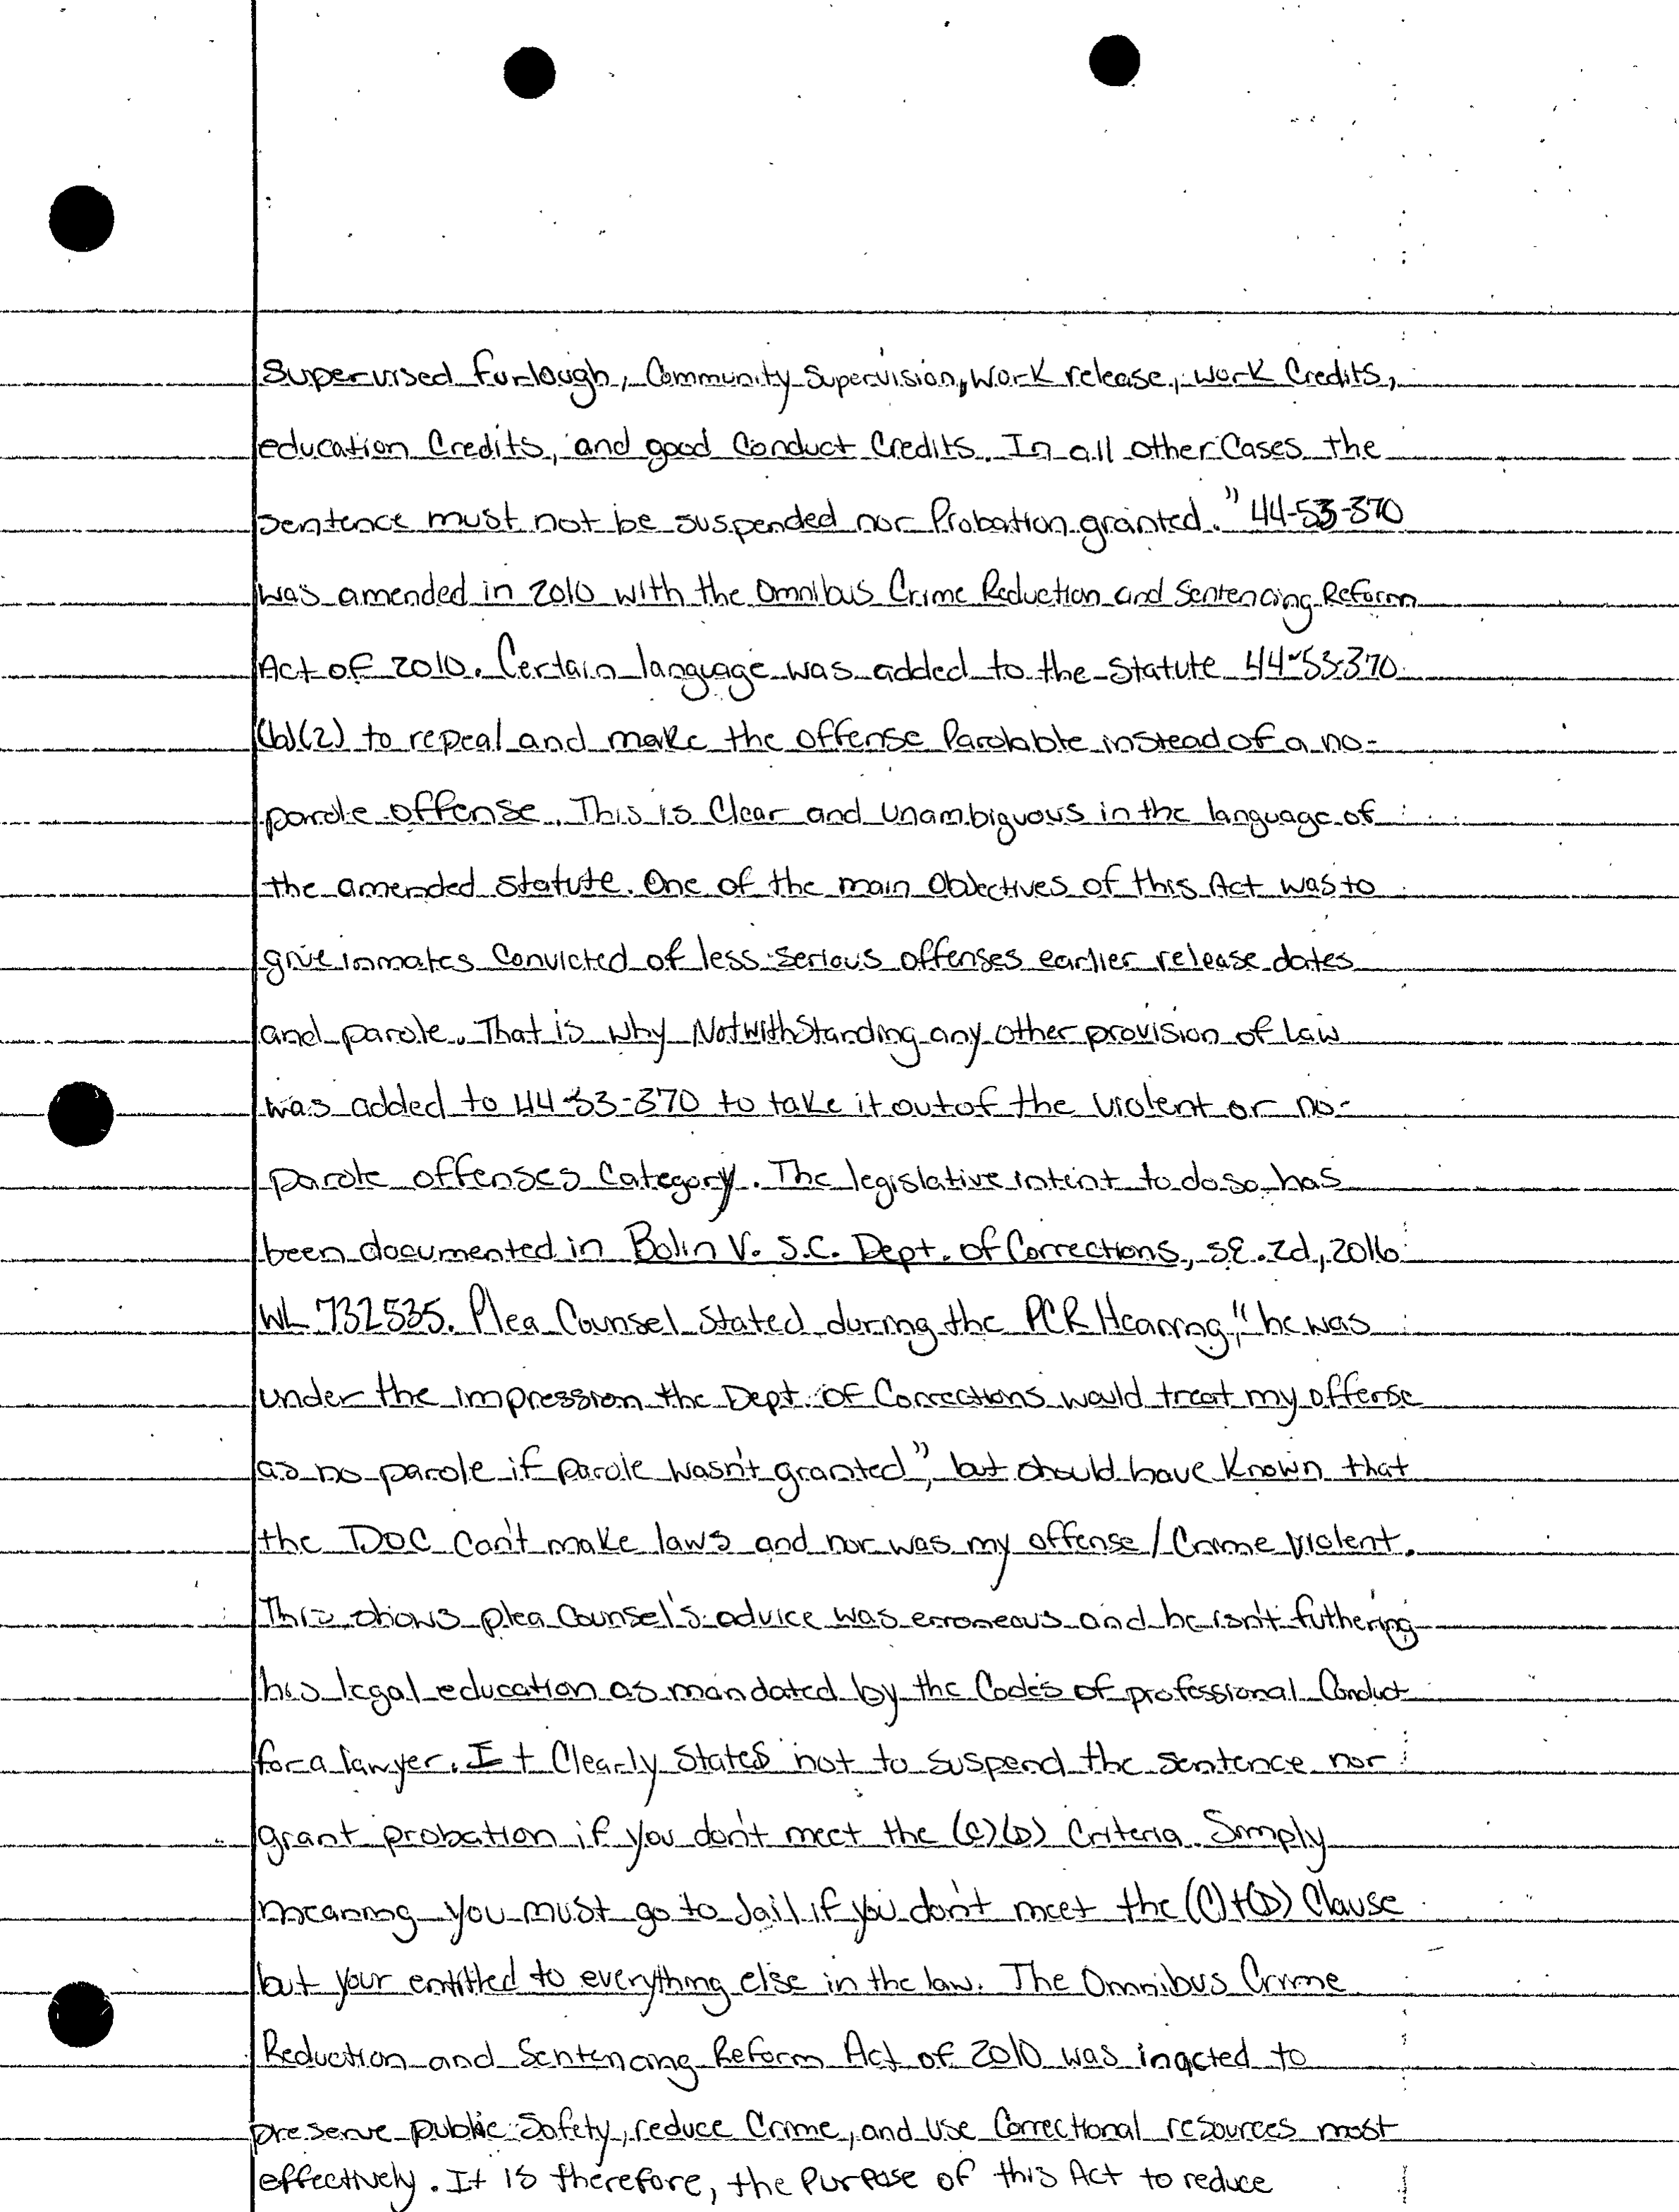 Supervised furlough, Community Supervision, work release, work Credits,
education Credits, and good Conduct Credits. In all other Cases the
sentence must not be suspended nor Probation granted." 44-53-370
was amended in 2010 with the Omnibus Crime Reduction and Sentencing Reform
Act of 2010. Certain language was added to the Statute 44-53-370
(b)(2) to repeal and make the offense Parolable instead of a no-
parole offense. This is Clear and unambiguous in the language of
the amended statute. One of the main Objectives of this Act was to
give inmates Convicted of less serious offenses earlier release dates
and parole. That is why Notwithstanding any other provision of law
was added to 44-53-370 to take it out of the violent or no-
parole offenses Category. The legislative intent to do so has
been documented in Bolin V. S.C. Dept. of Corrections, S.E.2d, 2016
WL 732535. Plea Counsel Stated during the PCR Hearing, "he was
under the impression the Dept. of Corrections would treat my offense
as no parole if parole wasn't granted", but should have Known that
the DOC Can't make laws and nor was my offense / Crime violent.
This shows plea Counsel's advice was erroneous and he isn't futhering
his legal education as mandated by the Codes of professional Conduct
for a lawyer. It Clearly States not to suspend the sentence nor
grant probation if you don't meet the (C)(D) Criteria. Simply
meaning you must go to Jail if you don't meet the (C)+(D) Clause
but your entitled to everything else in the law. The Omnibus Crime
Reduction and Sentencing Reform Act of 2010 was inacted to
preserve public Safety, reduce Crime, and Use Correctional resources most
effectively. It is therefore, the Purpose of this Act to reduce